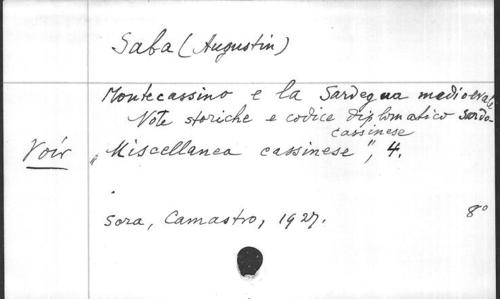 Saba (Augustin)
Montecassino e la Sardegna medioevale
Note storiche e codice diplomatico sardo-
cassinese
Voir "Miscellanea cassinese", 4.
Sora, Camastro, 1927. 8°